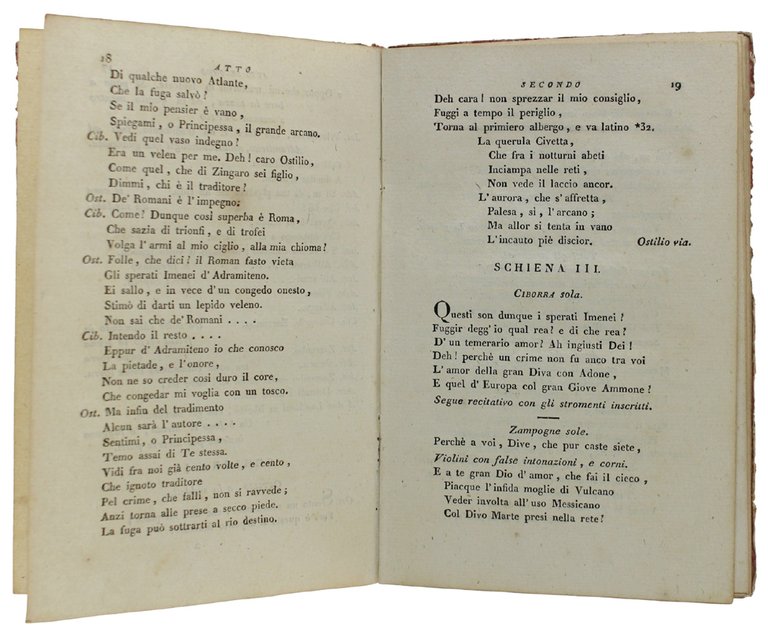 18
ATTO
Di qualche nuovo Atlante,
Che la fuga salvò?
Se il mio pensier è vano,
Spiegami, o Principessa, il grande arcano.
Cib. Vedi quel vaso indegno?
Era un velen per me. Deh! caro Ostilio,
Come quel, che di Zingaro sei figlio,
Dimmi, chi è il traditore?
Ost. De' Romani è l'impegno;
Cib. Come? Dunque così superba è Roma,
Che sazia di trionfi, e di trofei
Volga l'armi al mio ciglio, alla mia chioma?
Ost. Folle, che dici? il Roman fasto vieta
Gli sperati Imenei d'Adramiteno.
Ei sallo, e in vece d'un congedo onesto,
Stimò di darti un lepido veleno.
Non sai che de' Romani ....
Cib. Intendo il resto ....
Eppur d'Adramiteno io che conosco
La pietade, e l'onore,
Non ne so creder così duro il core,
Che congedar mi voglia con un tosco.
Ost. Ma infin del tradimento
Alcun sarà l'autore ....
Sentimi, o Principessa,
Temo assai di Te stessa.
Vidi fra noi già cento volte, e cento,
Che ignoto traditore
Pel crime, che falli, non si ravvede;
Anzi torna alle prese a secco piede.
La fuga può sottrarti al rio destino.
SECONDO
19
Deh cara! non sprezzar il mio consiglio,
Fuggi a tempo il periglio,
Torna al primiero albergo, e va latino *32.
La querula Civetta,
Che fra i notturni abeti
Inciampa nelle reti,
Non vede il laccio ancor.
L'aurora, che s'affretta,
Palesa, sì, l'arcano;
Ma allor si tenta in vano
L'incauto piè discior. Ostilio via.
SCHIENA III.
CIBORRA sola.
Questi son dunque i sperati Imenei?
Fuggir degg'io qual rea? e di che rea?
D'un temerario amor? Ah ingiusti Dei!
Deh! perchè un crime non fu anco tra voi
L'amor della gran Diva con Adone,
E quel d'Europa col gran Giove Ammone?
Segue recitativo con gli stromenti inscritti.
Zampogne sole.
Perchè a voi, Dive, che pur caste siete,
Violini con false intonazioni, e corni.
E a te gran Dio d'amor, che fai il cieco,
Piacque l'infida moglie di Vulcano
Veder involta all'uso Messicano
Col Divo Marte presi nella rete?